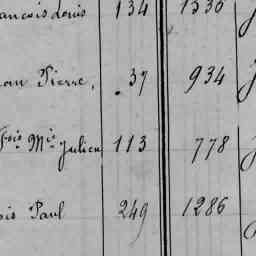 ancois Louis 134 1330
ean Pierre, 37 934
Fois Mie Julien 113 778
ois Paul 249 1286